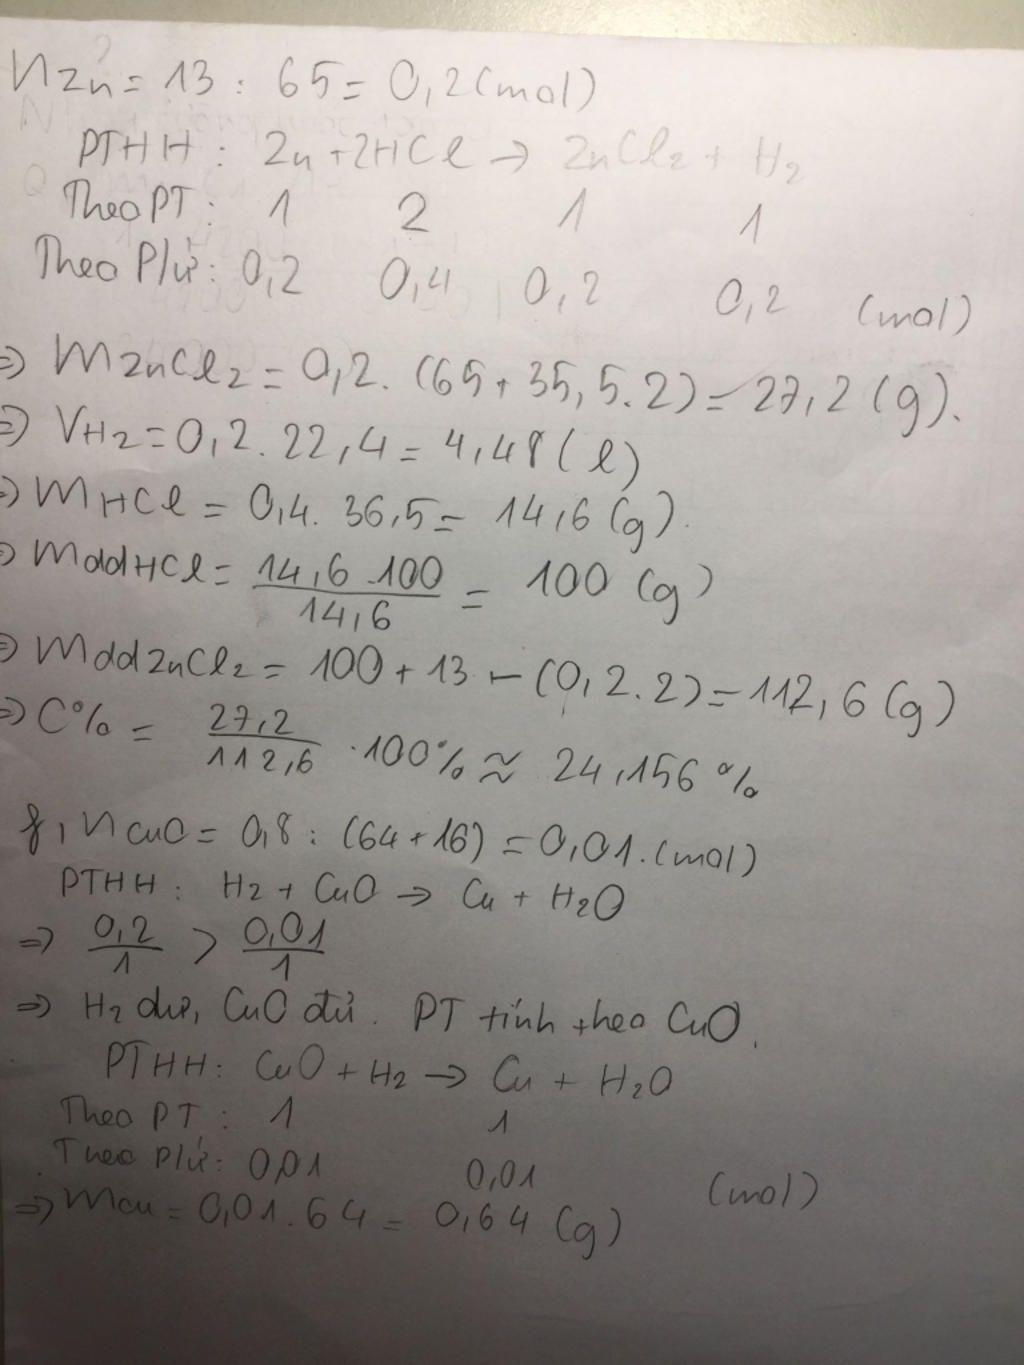 nZn = 13 : 65 = 0,2 (mol)
PTHH : Zn + 2HCl → ZnCl2 + H2
Theo PT : 1 2 1 1
Theo P/ứ : 0,2 0,4 0,2 0,2 (mol)
⇒ mZnCl2 = 0,2. (65 + 35,5.2) = 27,2 (g).
⇒ VH2 = 0,2. 22,4 = 4,48 (l)
⇒ mHCl = 0,4. 36,5 = 14,6 (g).
⇒ mddHCl = 14,6.100 / 14,6 = 100 (g)
⇒ mddZnCl2 = 100 + 13 - (0,2.2) = 112,6 (g)
⇒ C% = 27,2 / 112,6 .100% ≈ 24,156 %
f, nCuO = 0,8 : (64 + 16) = 0,01. (mol)
PTHH : H2 + CuO → Cu + H2O
⇒ 0,2 / 1 > 0,01 / 1
⇒ H2 dư, CuO đủ. PT tính theo CuO.
PTHH : CuO + H2 → Cu + H2O
Theo PT : 1 1
Theo P/ứ : 0,01 0,01 (mol)
⇒ mCu = 0,01. 64 = 0,64 (g)